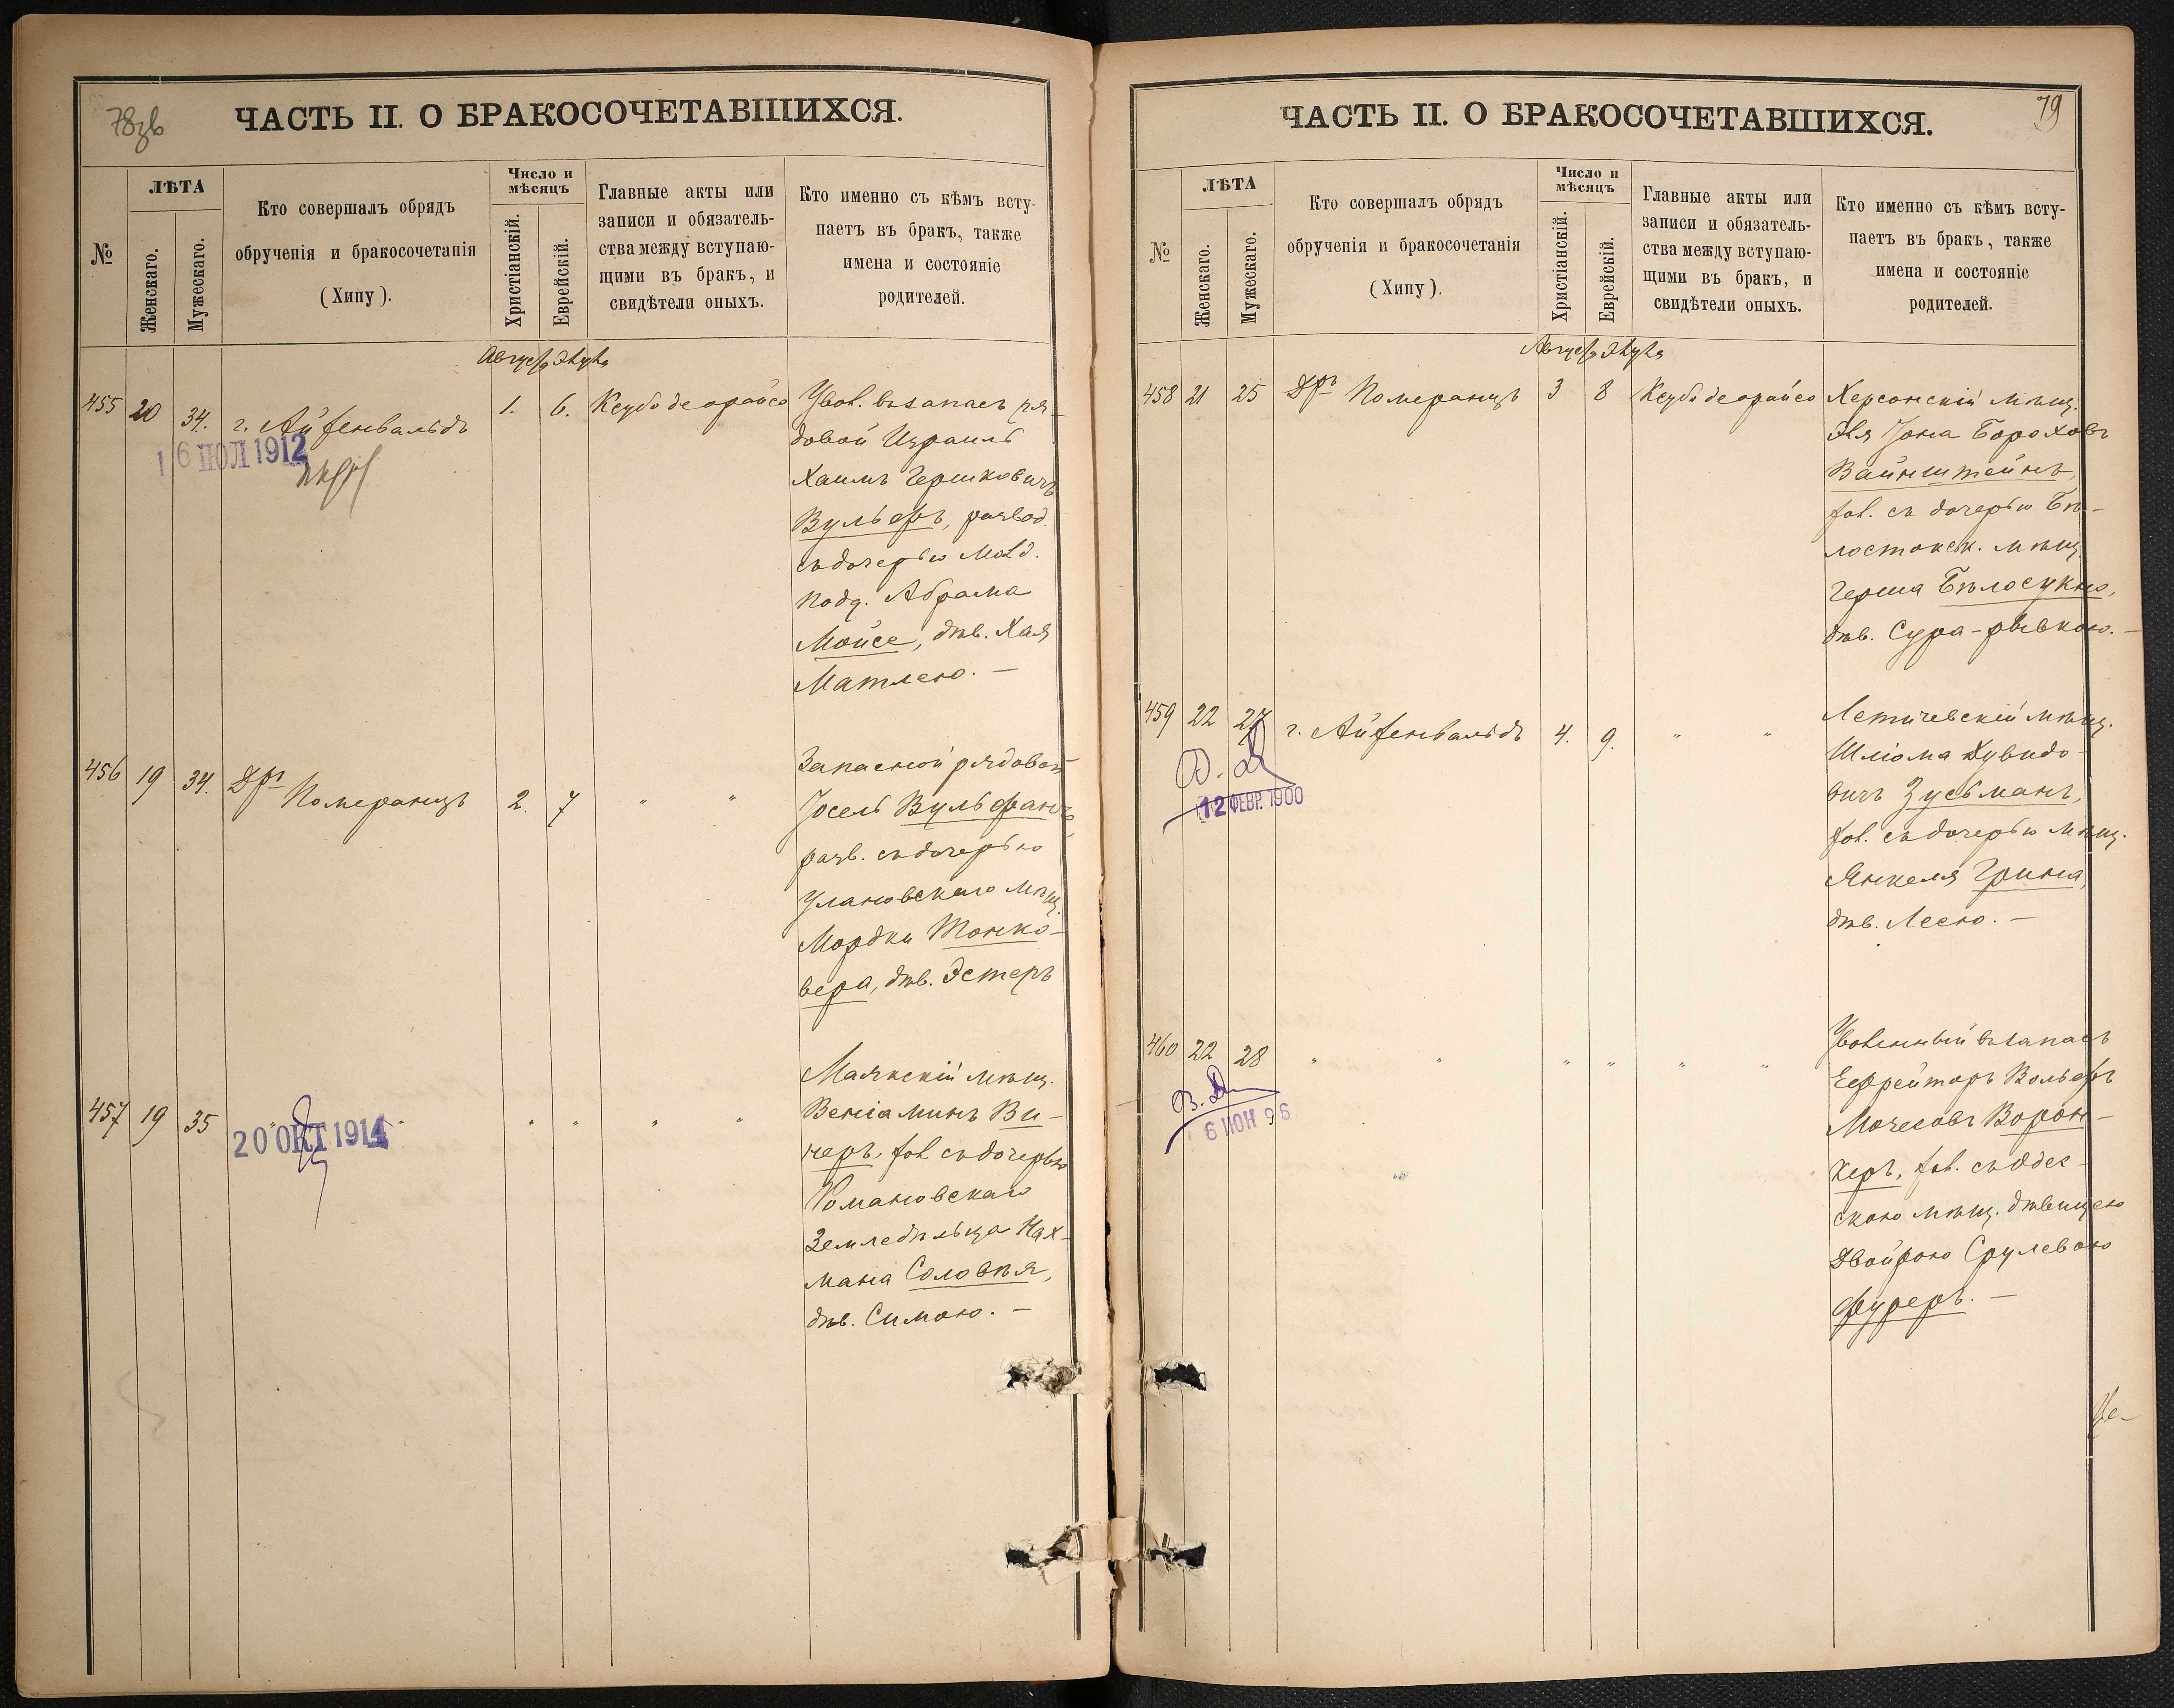 78зв
ЧАСТЬ II. О БРАКОСОЧЕТАВШИХСЯ.
№
ЛѢТА
Женскаго.
Мужескаго.
Кто совершалъ обрядъ
обрученія и бракосочетанія
(Хипу).
Число и
мѣсяцъ
Христіанскій.
Еврейскій.
Главные акты или
записи и обязатель-
ства между вступаю-
щими въ бракъ, и
свидѣтели оныхъ.
Кто именно съ кѣмъ всту-
паетъ въ бракъ, также
имена и состояніе
родителей.
Августа Элула
455 20 34. г. Айзенвальдъ 1. 6. Ксубо деорайсо
16 ІЮЛ 1912
Увол. въ запасъ ря-
довой Израиль
Хаимъ Гершковичъ
Вульфъ, развод.
съ дочерью Молд.
подд. Абрама
Мойсе, дѣв. Хая
Матлею. —
456 19 34. Дръ Померанцъ 2. 7 " "
Запасной рядовой
Іосель Вульфанъ,
разв. съ дочерью
Улановскаго мѣщ.
Мордки Тонко-
вера, дѣв. Эстеръ
457 19 35 " " " " " "
20 ОКТ 1914
Маякскій мѣщ.
Веніаминъ Ви-
херъ, хол. съ дочерью
Романовскаго
Земледѣльца Нах-
мана Соловья,
дѣв. Симою. —
79
ЧАСТЬ II. О БРАКОСОЧЕТАВШИХСЯ.
№
ЛѢТА
Женскаго.
Мужескаго.
Кто совершалъ обрядъ
обрученія и бракосочетанія
(Хипу).
Число и
мѣсяцъ
Христіанскій.
Еврейскій.
Главные акты или
записи и обязатель-
ства между вступаю-
щими въ бракъ, и
свидѣтели оныхъ.
Кто именно съ кѣмъ всту-
паетъ въ бракъ, также
имена и состояніе
родителей.
Августа Элула
458 21 25 Дръ Померанцъ 3 8 Ксубо деорайсо
Херсонскій мѣщ.
Эля Іона Бороховъ
Вайнштейнъ,
хол. съ дочерью Бѣ-
лостокск. мѣщ.
Герша Бѣлосукно,
дѣв. Сура-рывкою. —
459 22 27 г. Айзенвальдъ 4. 9. " "
12 ФЕВР. 1900
Летичевскій мѣщ.
Шліома Дувидо-
вичъ Зусьманъ,
хол. съ дочерью мѣщ.
Янкеля Грина,
дѣв. Леею. —
460 22 28 " " " " " "
6 ИЮН 96
Уволенный въ запасъ
Ефрейторъ Вольфъ
Мочесовъ Ворон-
керъ, хол. съ Одес-
скою мѣщ. дѣвицею
Двойрою Срулевою
Фуреръ. —